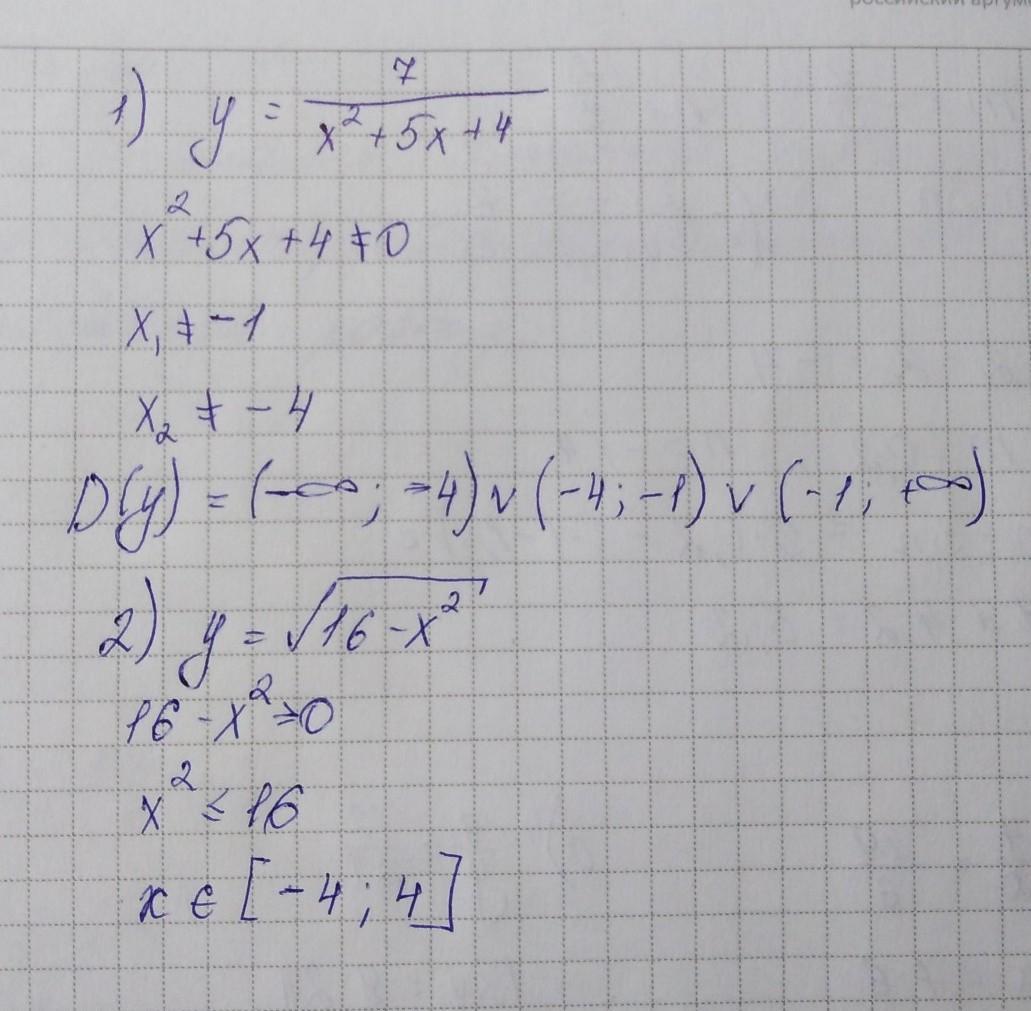 российский аргум
1) y = 7/(x² + 5x + 4)
x² + 5x + 4 ≠ 0
x₁ ≠ -1
x₂ ≠ - 4
D(y) = (-∞; -4) ∨ (-4; -1) ∨ (-1; +∞)
2) y = √(16 - x²)
16 - x² ≥ 0
x² ≤ 16
x ∈ [-4; 4]